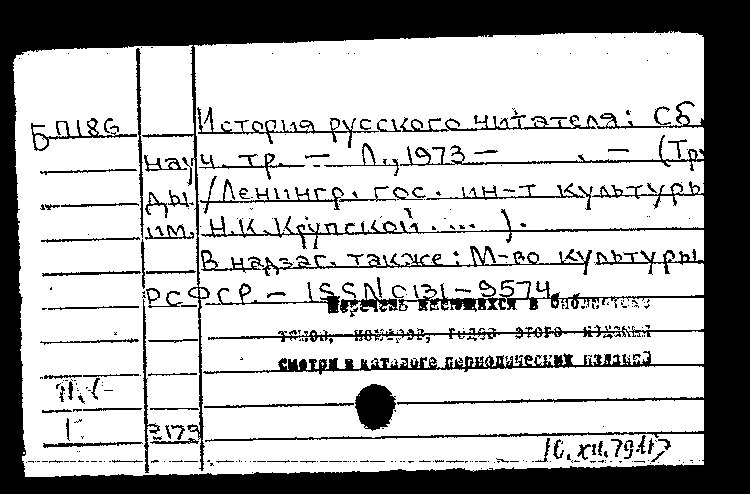 БП186 История русского читателя: Сб.
науч. тр. — Л., 1973 — . — (Тру
ды /Ленингр. гос. ин-т культуры
им. Н.К.Крупской. ... ).
В надзаг. также: М-во культуры
РСФСР. — ISSN 0131-9574
Перечень имеющихся в библиотеке
томов, номеров, годов этого издания
смотри в каталоге периодических изданий
3179
10.XII.79